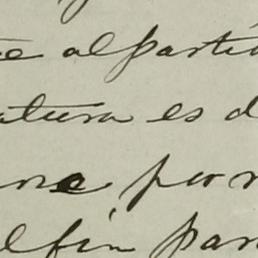 e al partid
atura es d
ne, por
al fin par